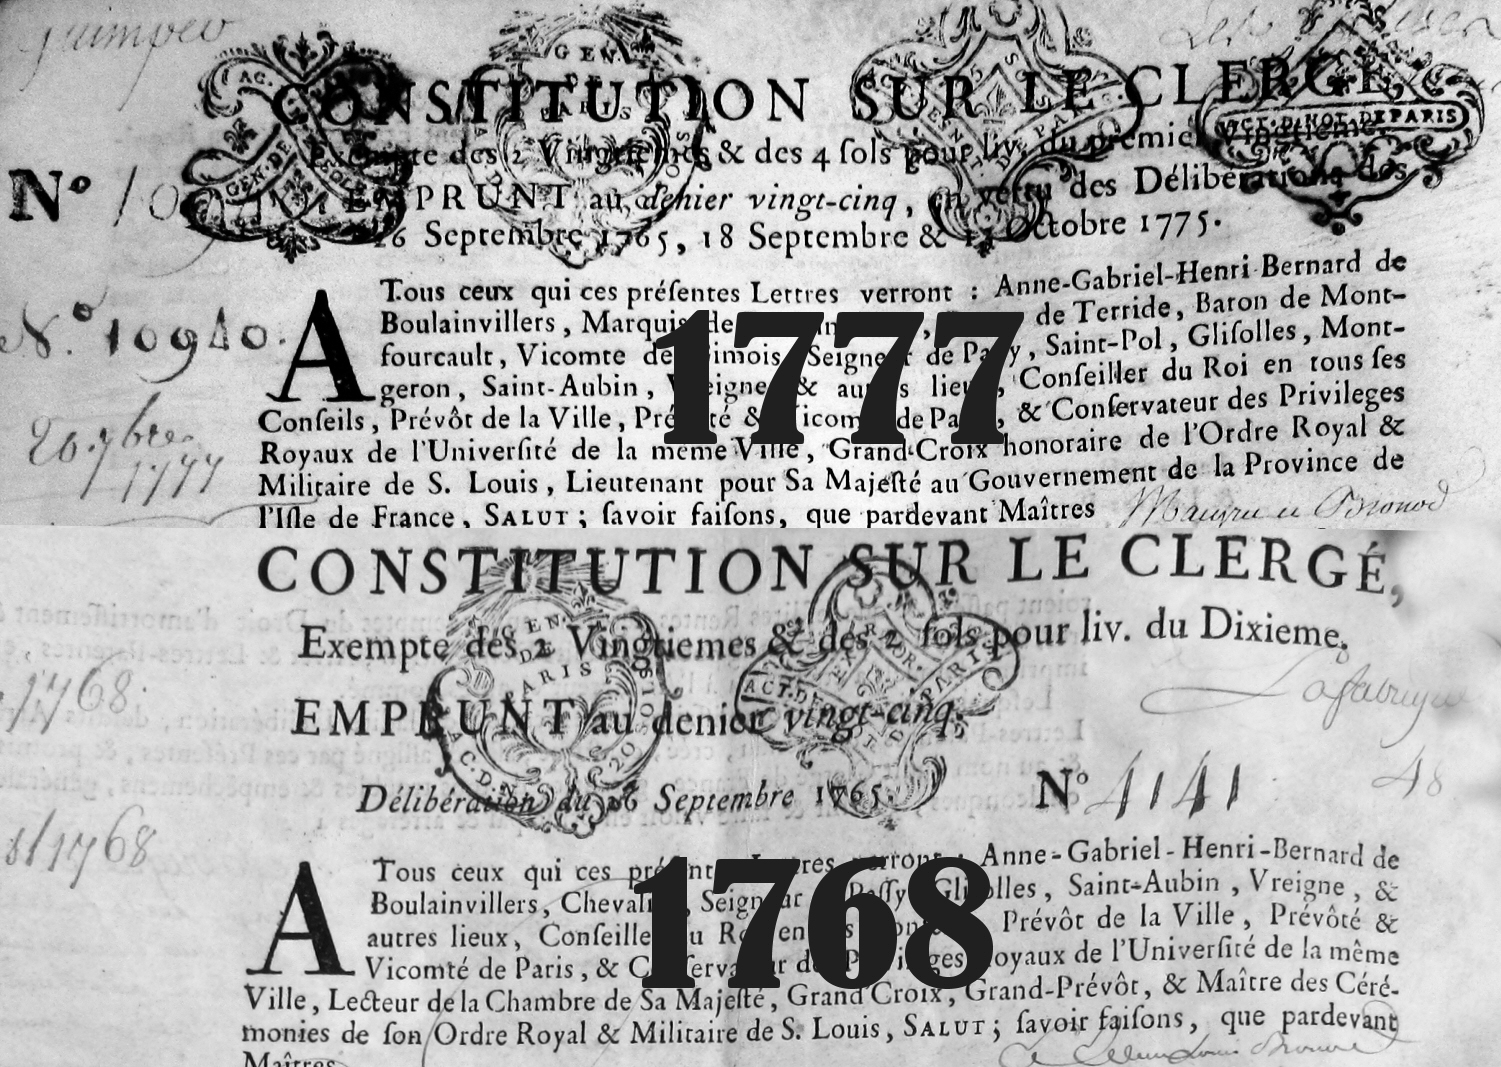 Quimper
CONSTITUTION SUR LE CLERGÉ,
Exempte des 2 Vingtiemes & des 4 ſols pour liv. du premier Vingtieme.
Nº 10
EMPRUNT au denier vingt-cinq, en vertu des Délibérations des
26 Septembre 1765, 18 Septembre & Octobre 1775.
GEN. DE PARIS
ACT. D. NOT. DE PARIS
A Tous ceux qui ces préſentes Lettres verront : Anne-Gabriel-Henri-Bernard de
Boulainvillers, Marquis de Terride, Baron de Mont-
Nº 10940.
fourcault, Vicomte de Seigneur de Paſſy, Saint-Pol, Gliſolles, Mont-
geron, Saint-Aubin, Vreigne & autres lieux, Conſeiller du Roi en tous ſes
Conſeils, Prévôt de la Ville, Prévôté & Vicomté de Paris, & Conſervateur des Privileges
20. 7bre.
1777
Royaux de l'Univerſité de la même Ville, Grand-Croix honoraire de l'Ordre Royal &
Militaire de S. Louis, Lieutenant pour Sa Majeſté au Gouvernement de la Province de
l'Iſle de France, SALUT ; ſavoir faiſons, que pardevant Maîtres
1777
CONSTITUTION SUR LE CLERGÉ,
Exempte des 2 Vingtiemes & des 2 ſols pour liv. du Dixieme.
1768.
EMPRUNT au denier vingt-cinq.
GEN. DE PARIS
Délibération du 26 Septembre 1765.
Nº 4141
48
1768
A Tous ceux qui ces préſentes Lettres verront : Anne-Gabriel-Henri-Bernard de
Boulainvillers, Chevalier, Seigneur de Paſſy, Gliſolles, Saint-Aubin, Vreigne, &
autres lieux, Conſeiller du Roi en ſes Conſeils, Prévôt de la Ville, Prévôté &
Vicomté de Paris, & Conſervateur des Privileges Royaux de l'Univerſité de la même
Ville, Lecteur de la Chambre de Sa Majeſté, Grand'Croix, Grand-Prévôt, & Maître des Céré-
monies de ſon Ordre Royal & Militaire de S. Louis, SALUT ; ſavoir faiſons, que pardevant
Maîtres
1768